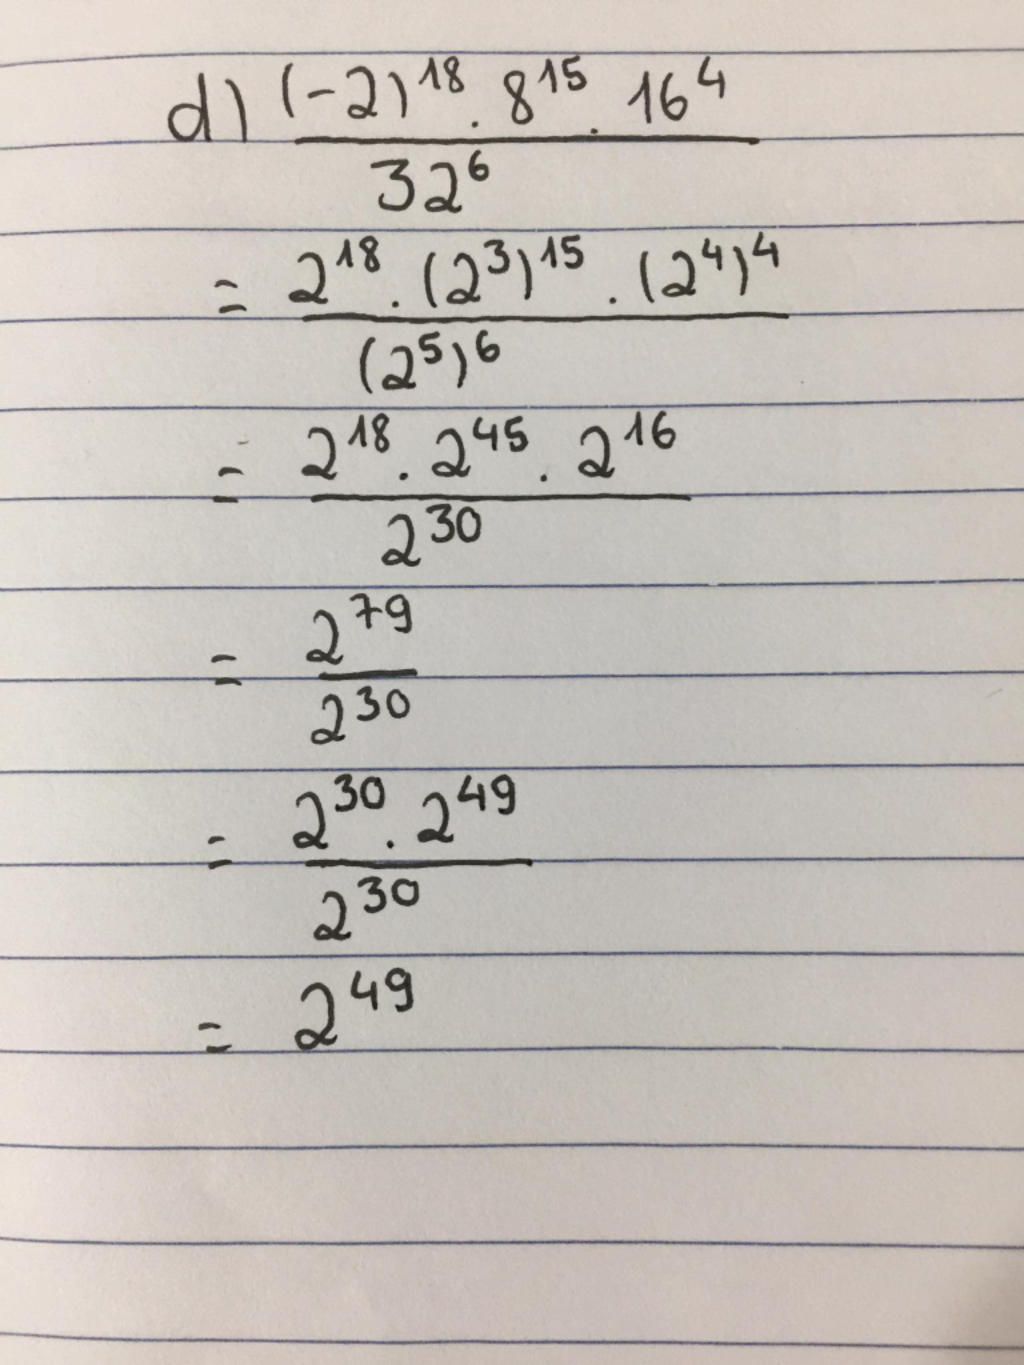 d) (-2)^18 . 8^15 . 16^4
32^6
= 2^18 . (2^3)^15 . (2^4)^4
(2^5)^6
= 2^18 . 2^45 . 2^16
2^30
= 2^79
2^30
= 2^30 . 2^49
2^30
= 2^49